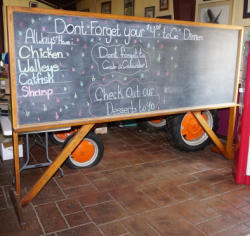 Don't Forget your "to Go" Dinner
Always Have:
Chicken
Walleye
Catfish
Shrimp
Don't forget to
Grab a
Check Out our
Desserts to Go